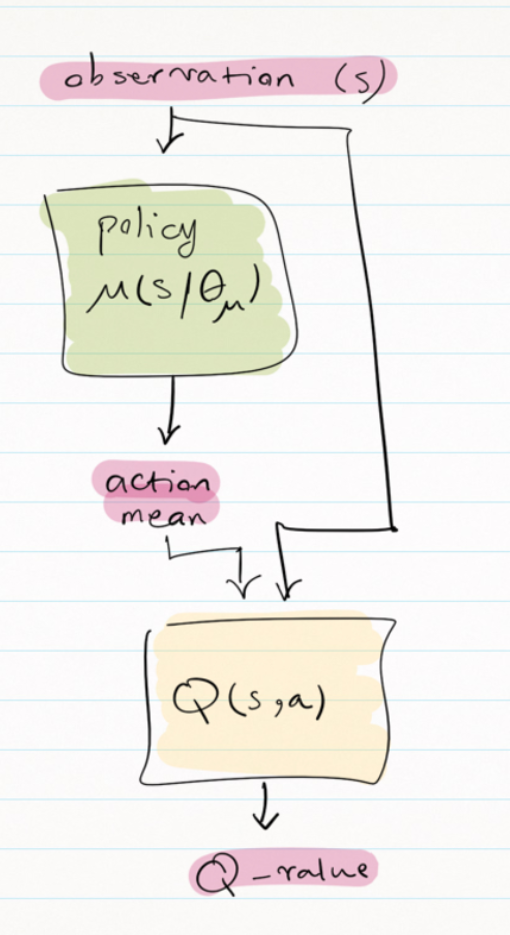 observation (s)
policy
μ(s/θμ)
action
mean
Q(s,a)
Q-value